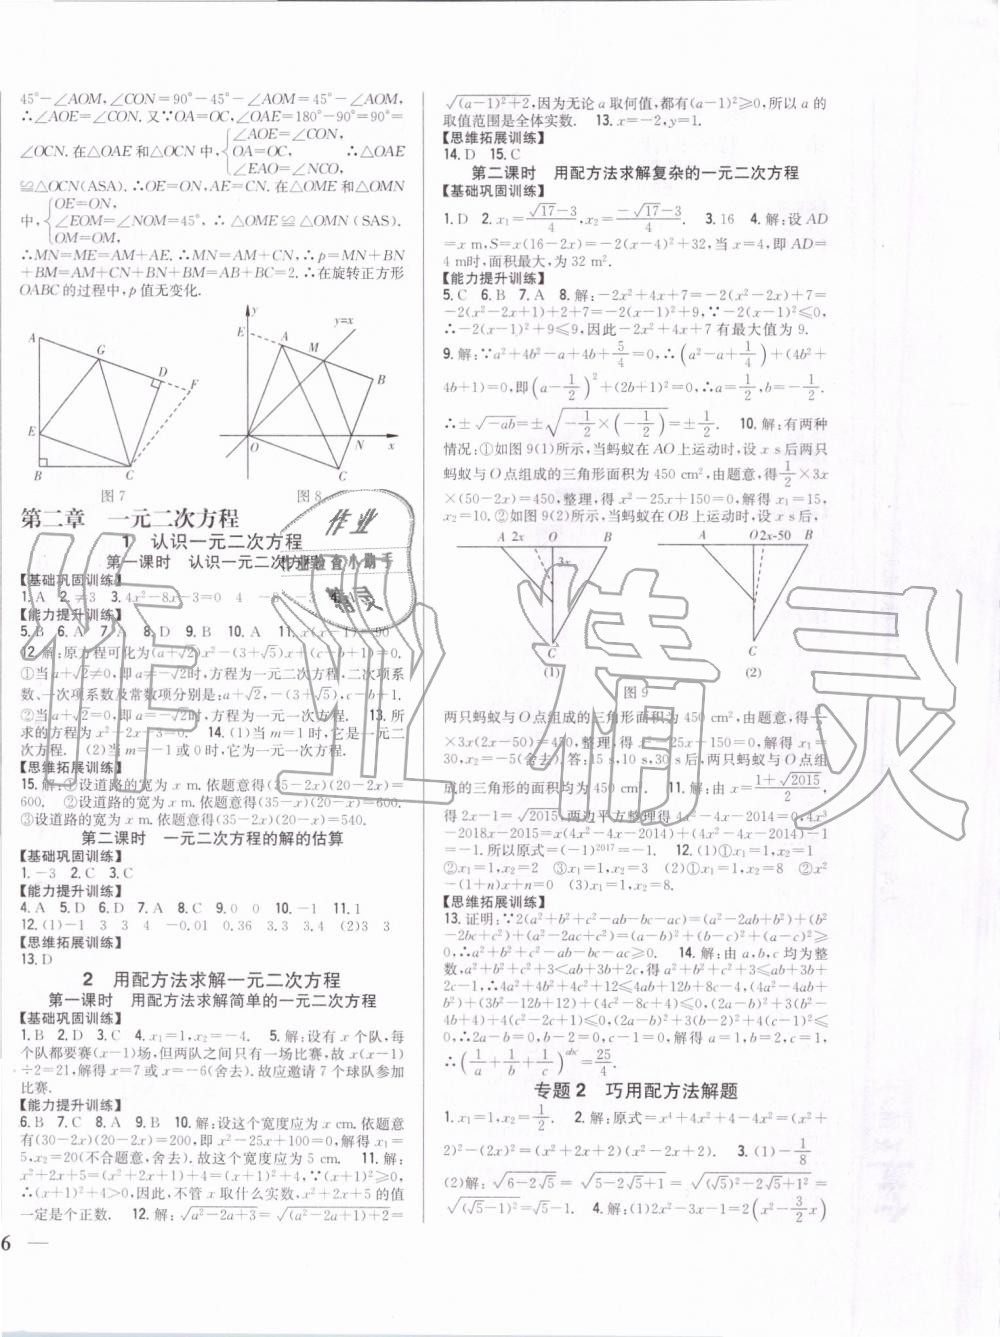 45°－∠AOM,∠CON＝90°－45°－∠AOM＝45°－∠AOM,
∴∠AOE＝∠CON. 又∵OA＝OC,∠OAE＝180°－90°＝90°＝
∠OCN. 在△OAE和△OCN中,{∠AOE＝∠CON, OA＝OC, ∠EAO＝∠NCO, ∴△OAE
≌△OCN(ASA). ∴OE＝ON,AE＝CN. 在△OME和△OMN
中,{OE＝ON, ∠EOM＝∠NOM＝45°, OM＝OM, ∴△OME≌△OMN (SAS).
∴MN＝ME＝AM＋AE. ∴MN＝AM＋CN, ∴p＝MN＋BN
＋BM＝AM＋CN＋BN＋BM＝AB＋BC＝2. ∴在旋转正方形
OABC的过程中,p值无变化.
A G D F E B C
y y=x E A M B O N x C
图7 图8
第二章 一元二次方程
1 认识一元二次方程
第一课时 认识一元二次方程
【基础巩固训练】
1. A 2. ≠3 3. 4x²－8x－3＝0 4 －8 －3
【能力提升训练】
5. B 6. A 7. A 8. D 9. B 10. A 11. x(x－1)＝90
12. 解:原方程可化为(a＋√2)x²－(3＋√5)x＋(c－b＋1)＝0.
①当a＋√2≠0,即a≠－√2时,方程为一元二次方程,二次项系
数、一次项系数及常数项分别是:a＋√2,－(3＋√5),c－b＋1.
②当a＋√2＝0,即a＝－√2时,方程为一元一次方程. 13. 所
求的方程为x²－2x－3＝0. 14. (1)当m＝1时,它是一元二
次方程. (2)当m＝－1或0时,它为一元一次方程.
【思维拓展训练】
15. 解:①设道路的宽为x m. 依题意得(35－2x)(20－2x)＝
600. ②设道路的宽为x m. 依题意得(35－x)(20－x)＝600.
③设道路的宽为x m. 依题意得(35－2x)(20－x)＝540.
第二课时 一元二次方程的解的估算
【基础巩固训练】
1. －3 2. C 3. C
【能力提升训练】
4. A 5. D 6. D 7. A 8. C 9. 0 0 10. －1 11. 1
12. (1)－1 3 3 4 －0.01 0.36 3.3 3.4 (2)3 3
【思维拓展训练】
13. D
2 用配方法求解一元二次方程
第一课时 用配方法求解简单的一元二次方程
【基础巩固训练】
1. B 2. D 3. C 4. x₁＝1,x₂＝－4. 5. 解:设有x个队,每
个队都要赛(x－1)场,但两队之间只有一场比赛,故x(x－1)
÷2＝21,解得x＝7或x＝－6(舍去). 故应邀请7个球队参加
比赛.
【能力提升训练】
6. B 7. C 8. A 9. B 10. 解:设这个宽度应为x cm. 依题意
有(30－2x)(20－2x)＝200,即x²－25x＋100＝0,解得x₁＝
5,x₂＝20(不合题意,舍去). 故这个宽度应为5 cm. 11. 解:
x²＋2x＋5＝(x²＋2x＋1)＋4＝(x＋1)²＋4,∵(x＋1)²≥0,
∴(x＋1)²＋4>0,因此,不管x取什么实数,x²＋2x＋5的值
一定是个正数. 12. 解:√(a²－2a＋3)＝√((a²－2a＋1)＋2)＝
6
√((a－1)²＋2),因为无论a取何值,都有(a－1)²≥0,所以a的
取值范围是全体实数. 13. x＝－2,y＝1.
【思维拓展训练】
14. D 15. C
第二课时 用配方法求解复杂的一元二次方程
【基础巩固训练】
1. D 2. x₁＝(√17－3)/4,x₂＝(－√17－3)/4. 3. 16 4. 解:设AD
＝x m,S＝x(16－2x)＝－2(x－4)²＋32,当x＝4,即AD＝
4 m时,面积最大,为32 m².
【能力提升训练】
5. C 6. B 7. A 8. 解:－2x²＋4x＋7＝－2(x²－2x)＋7＝
－2(x²－2x＋1)＋2＋7＝－2(x－1)²＋9,∵－2(x－1)²≤0,
∴－2(x－1)²＋9≤9,因此－2x²＋4x＋7有最大值为9.
9. 解:∵a²＋4b²－a＋4b＋5/4＝0,∴(a²－a＋1/4)＋(4b²＋
4b＋1)＝0,即(a－1/2)²＋(2b＋1)²＝0,∴a＝1/2,b＝－1/2.
∴±√(－ab)＝±√(－1/2×(－1/2))＝±1/2. 10. 解:有两种
情况:①如图9(1)所示,当蚂蚁在AO上运动时,设x s后两只
蚂蚁与O点组成的三角形面积为450 cm²,由题意,得1/2×3x
×(50－2x)＝450,整理,得x²－25x＋150＝0,解得x₁＝15,
x₂＝10. ②如图9(2)所示,当蚂蚁在OB上运动时,设x s后,
A 2x O B 3x C (1)
A O 2x-50 B C (2)
图9
两只蚂蚁与O点组成的三角形面积为450 cm²,由题意,得1/2
×3x(2x－50)＝450,整理,得x²－25x－150＝0,解得x₁＝
30,x₂＝－5(舍去). 答:15 s,10 s,30 s后,两只蚂蚁与O点组
成的三角形的面积均为450 cm². 11. 解:由x＝(1＋√2015)/2,
得2x－1＝√2015,两边平方整理得4x²－4x－2014＝0,4x³
－2018x－2015＝x(4x²－4x－2014)＋(4x²－4x－2014)－1
＝－1. 所以原式＝(－1)²⁰¹⁷＝－1. 12. (1)①x₁＝1,x₂＝1
②x₁＝1,x₂＝2 ③x₁＝1,x₂＝3 (2)①x₁＝1,x₂＝8 ②x²
－(1＋n)x＋n＝0 (3)x₁＝1,x₂＝8.
【思维拓展训练】
13. 证明:∵2(a²＋b²＋c²－ab－bc－ac)＝(a²－2ab＋b²)＋(b²
－2bc＋c²)＋(a²－2ac＋c²)＝(a－b)²＋(b－c)²＋(a－c)²≥
0,∴a²＋b²＋c²－ab－bc－ac≥0. 14. 解:由a,b,c均为整
数,a²＋b²＋c²＋3<ab＋3b＋2c,得a²＋b²＋c²＋3≤ab＋3b＋
2c－1,∴4a²＋4b²＋4c²＋12≤4ab＋12b＋8c－4,(4a²－4ab＋
b²)＋(3b²－12b＋12)＋(4c²－8c＋4)≤0,(2a－b)²＋3(b²－
4b＋4)＋4(c²－2c＋1)≤0,(2a－b)²＋3(b－2)²＋4(c－1)²≤
0,∴2a－b＝0,b－2＝0,c－1＝0,解得a＝1,b＝2,c＝1,
∴(1/a＋1/b＋1/c)^abc＝25/4.
专题2 巧用配方法解题
1. x₁＝1,x₂＝1/2. 2. 解:原式＝x⁴＋4x²＋4－4x²＝(x²＋
2)²－(2x)²＝(x²＋2x＋2)(x²－2x＋2). 3. (1)－1/8
(2)解:√(6－2√5)＝√(5－2√5＋1)＝√((√5)²－2√5＋1²)＝
√((√5－1)²)＝√5－1. 4. 解:(1)2x²－3x－1＝2(x²－3/2x)
作业
作业检查小助手
精灵
作业精灵